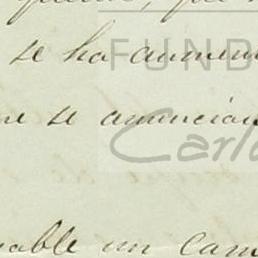 se ha aumen
FUND
se anuncian
Carlo
able un cam